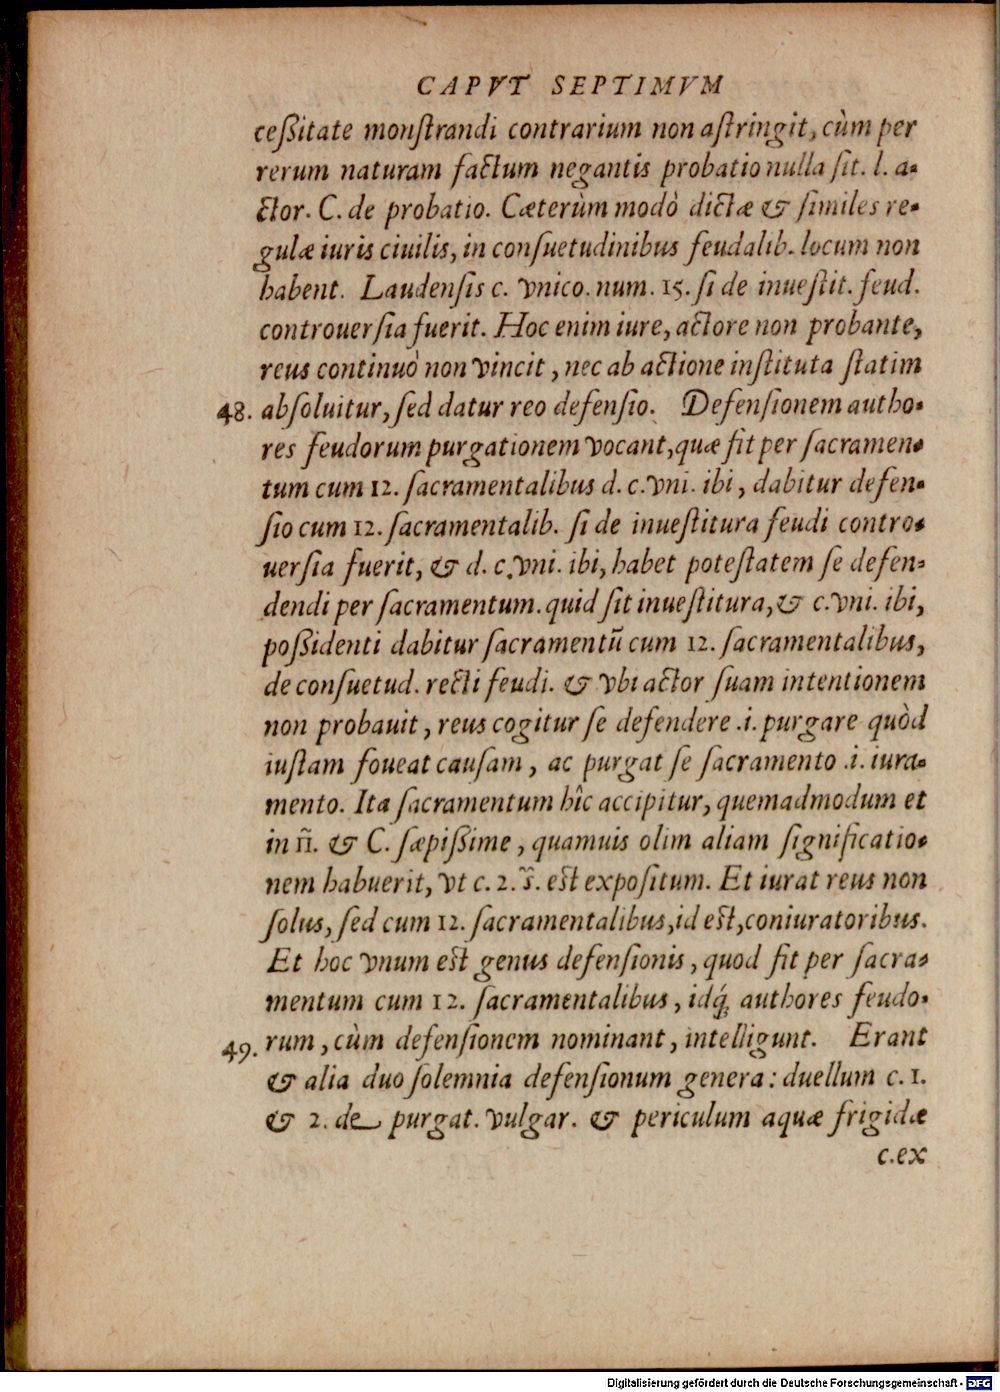 CAPVT SEPTIMVM
ceßitate monſtrandi contrarium non aſtringit, cùm per
rerum naturam factum negantis probatio nulla ſit. l. a-
ctor. C. de probatio. Cæterùm modò dictæ & ſimiles re-
gulæ iuris ciuilis, in conſuetudinibus feudalib. locum non
habent. Laudenſis c. vnico. num. 15. ſi de inueſtit. feud.
controuerſia fuerit. Hoc enim iure, actore non probante,
reus continuò non vincit, nec ab actione inſtituta ſtatim
48. abſoluitur, ſed datur reo defenſio. Defenſionem autho-
res feudorum purgationem vocant, quæ fit per ſacramen-
tum cum 12. ſacramentalibus d. c. vni. ibi, dabitur defen-
ſio cum 12. ſacramentalib. ſi de inueſtitura feudi contro-
uerſia fuerit, & d. c. vni. ibi, habet poteſtatem ſe defen-
dendi per ſacramentum. quid ſit inueſtitura, & c. vni. ibi,
poßidenti dabitur ſacramentũ cum 12. ſacramentalibus,
de conſuetud. recti feudi. & vbi actor ſuam intentionem
non probauit, reus cogitur ſe defendere .i. purgare quòd
iuſtam foueat cauſam, ac purgat ſe ſacramento .i. iura-
mento. Ita ſacramentum hîc accipitur, quemadmodum et
in ñ. & C. ſæpißime, quamuis olim aliam ſignificatio-
nem habuerit, vt c. 2. s̃. eſt expoſitum. Et iurat reus non
ſolus, ſed cum 12. ſacramentalibus, id eſt, coniuratoribus.
Et hoc vnum eſt genus defenſionis, quod fit per ſacra-
mentum cum 12. ſacramentalibus, idq́; authores feudo-
49. rum, cùm defenſionem nominant, intelligunt. Erant
& alia duo ſolemnia defenſionum genera: duellum c. 1.
& 2. de purgat. vulgar. & periculum aquæ frigidæ
c. ex
Digitalisierung gefördert durch die Deutsche Forschungsgemeinschaft - DFG